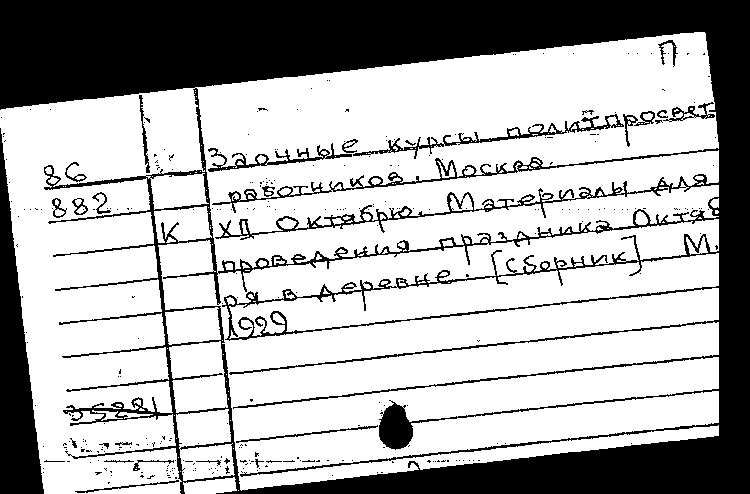 П
Заочные курсы политпросвет
86
работников. Москва.
882
К XII Октябрю. Материалы для
проведения праздника Октяб
ря в деревне. [Сборник] М.
1929.
35221